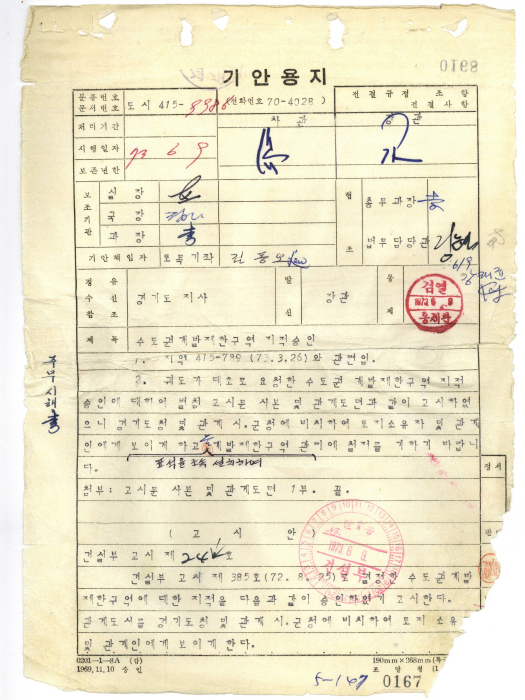 0168
기 안 용 지
분류번호
문서번호
도시 415-
(전화번호 70-4028)
전결규정 조 항
전결사항
처리기간
차관
장관
시행일자
73 6 9
보존년한
보조기관
실장
국장
과장
협조
총무과장
법무담당관
6/9
기안책임자
토목기좌
경유
수신
참조
경기도 지사
발신
장관
통제
검열
1973 6 9
통제관
제목
수도권개발제한구역 지적승인
1. 지역 415-799 (73.3.26)와 관련임.
2. 귀도가 대호로 요청한 수도권 개발제한구역 지적
승인에 대하여 별첨 고시문 사본 및 관계도면과 같이 고시하였
으니 경기도청및 관계시.군청에 비치하여 토지소유자 및 관계
인에게 보이게 하고 개발제한구역 관리에 철저를 기하기 바랍니
다.
표석을 조속 설치하며
첨부: 고시문 사본 및 관계도면 1부. 끝.
( 고 시 안 )
건설부 고시 제 호
건설부 고시 제 385호(72. 8. 25)로 결정한 수도권개발
제한구역에 대한 지적을 다음과 같이 승인하였기 고시한다.
관계도시를 경기도청및 관계 시.군청에 비치하여 토지 소유
및 관계인에게 보이게 한다.
1973. 6. 9.
0201-1-8A (갑)
1969.11.10 승인
190mm×268mm
조달청
5-147
0167